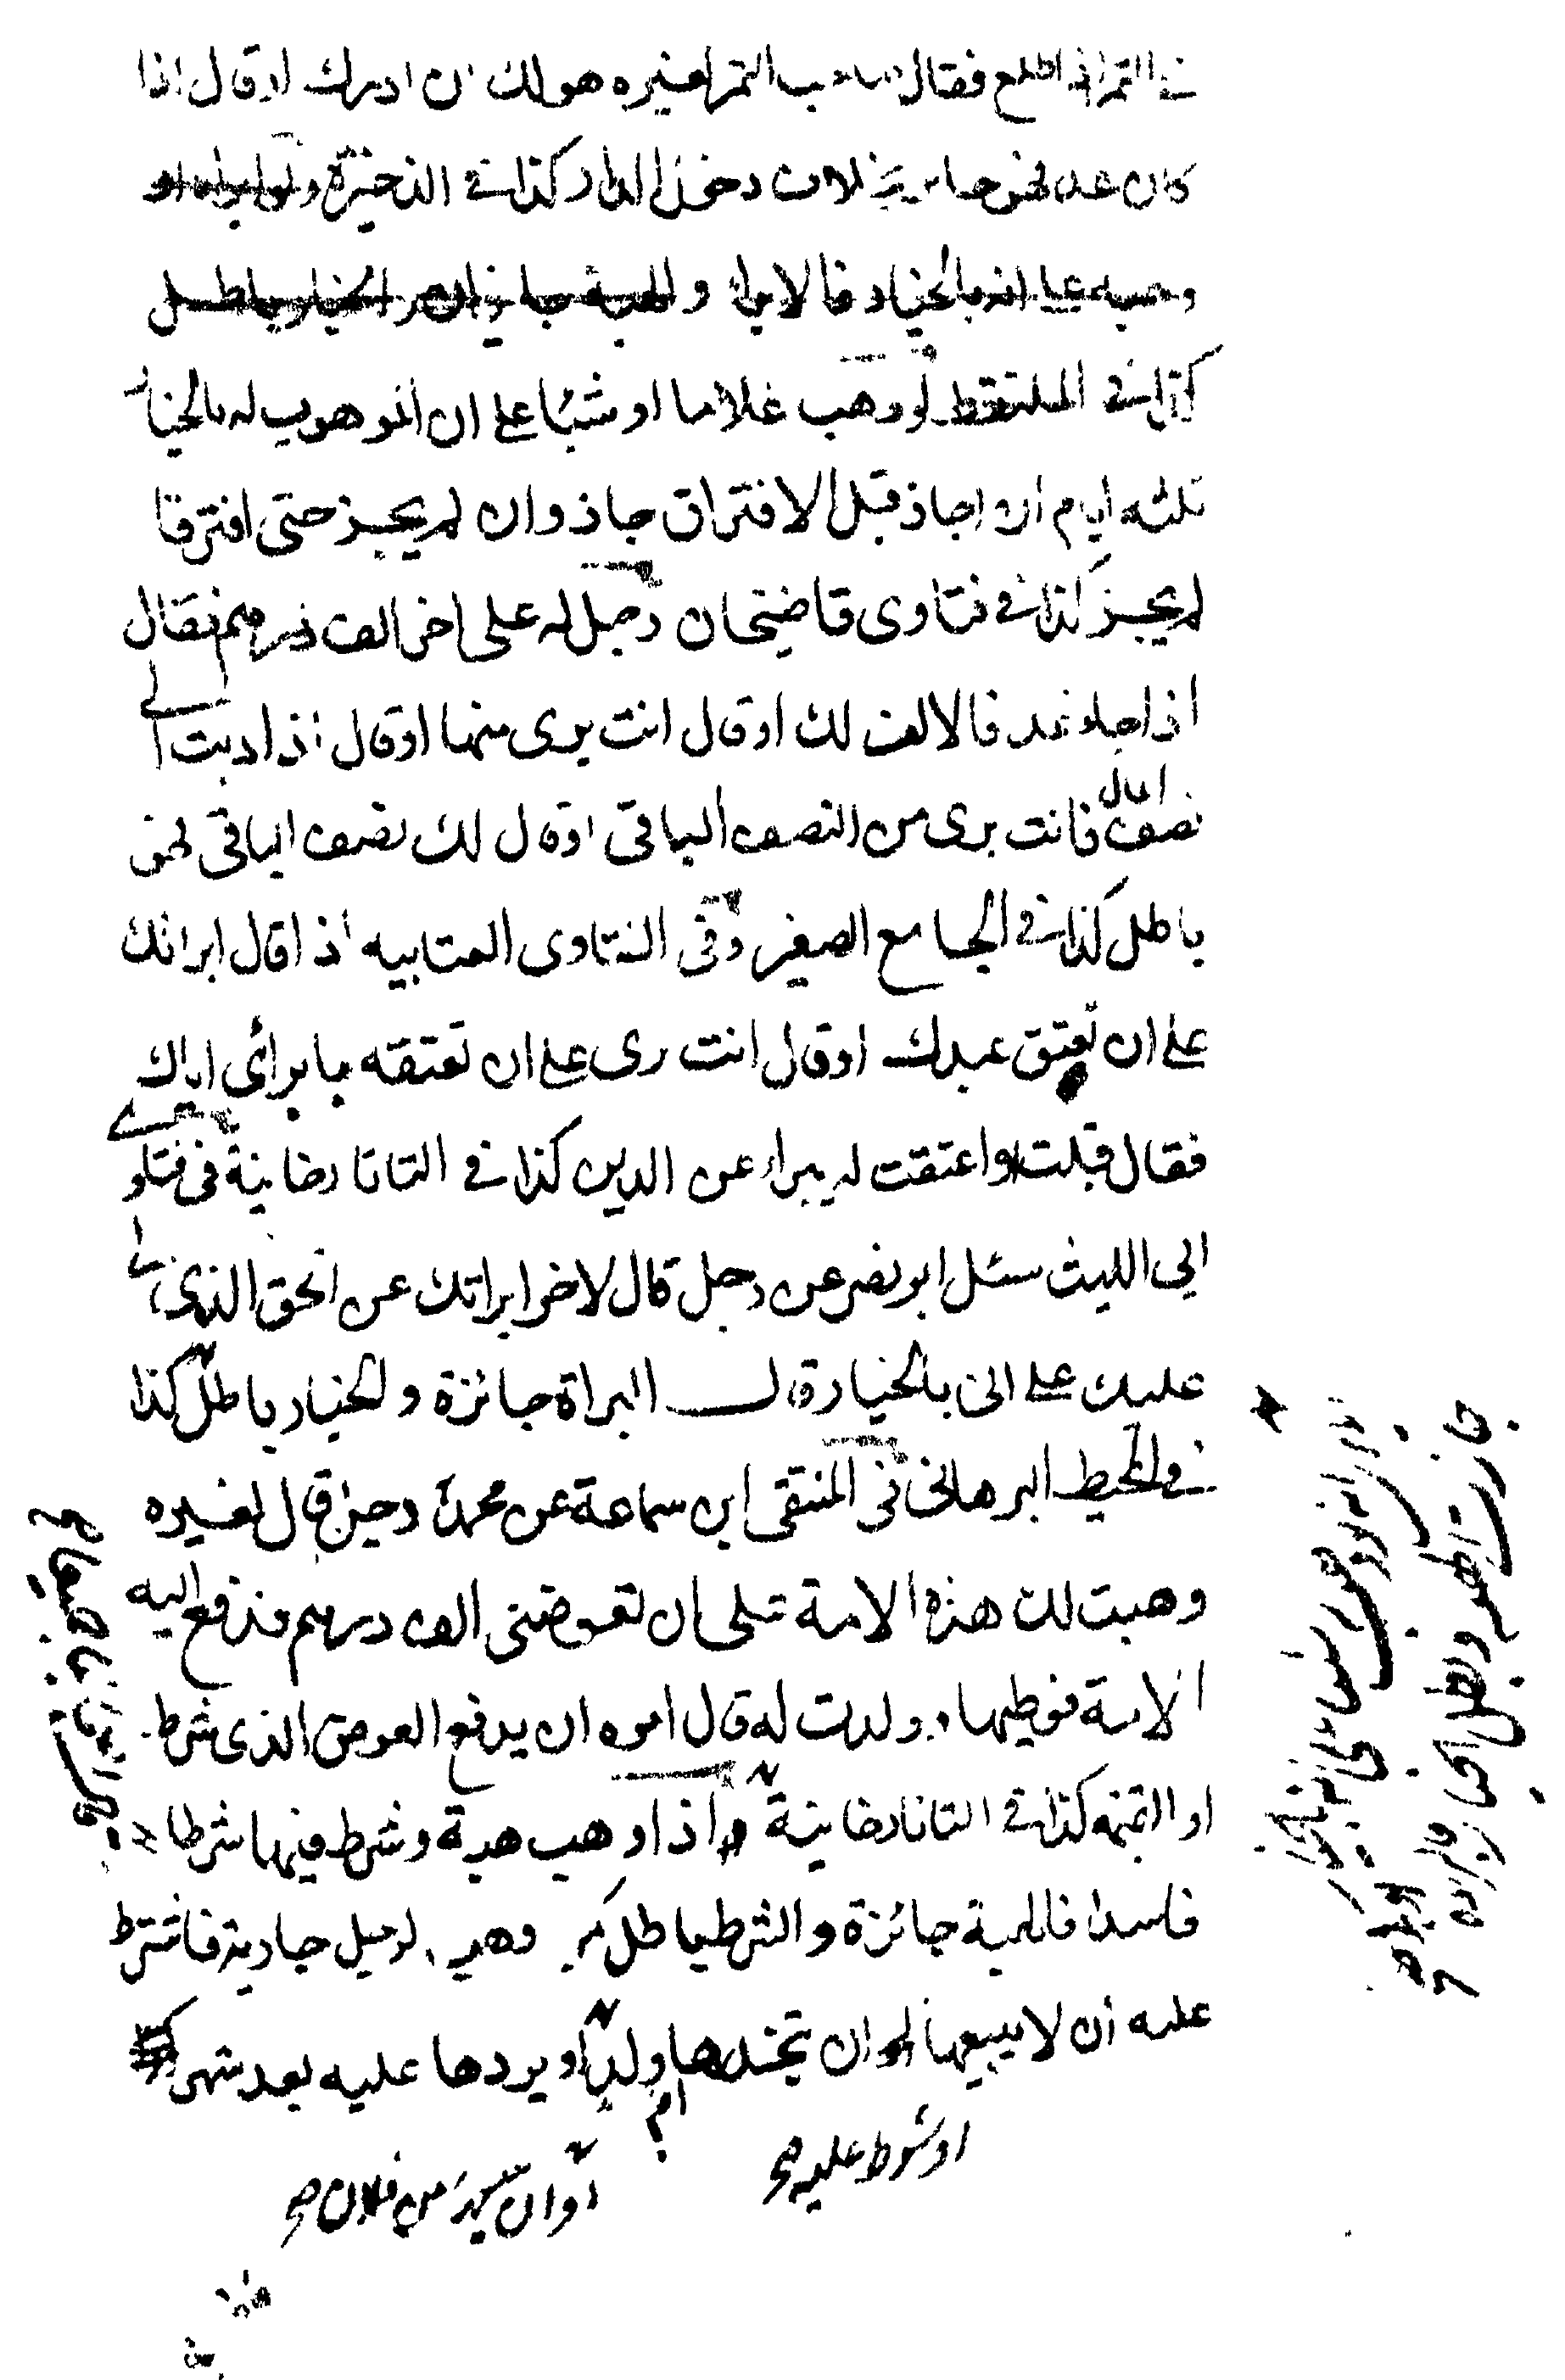 في التمر اذا اطلع فقال صاحب التمر لغيره هو لك ان ادرك او قال اذا
كان غد فهو جايز بخلاف دخول الدار كذا في الذخيرة ولو ابراه او
وهبه على انه بالخيار فالابراء والهبة جايزان والخيار باطل
كذا في الملتقط لو وهب غلاما او شيئا على ان الموهوب له بالخيار
ثلثه ايام ان اجاز قبل الافتراق جاز وان لم يجز حتى افترقا
لم يجز كذا في فتاوى قاضيخان رجل له على اخر الف درهم فقال
اذا جاء غد فالالف لك او قال انت برى منها او قال اذا اديت الي
نصف المال فانت برى من النصف الباقى او قال لك نصف الباقى فهو
باطل كذا في الجامع الصغير وفى الفتاوى العتابيه اذا قال ابراتك
على ان تعتق عبدك او قال انت برى على ان تعتقه بابرائى اياك
فقال قبلت واعتقت لم يبراء عن الدين كذا في التاتارخانية فى فتاوى
ابى الليث سئل ابو نصر عن رجل قال لاخر ابراتك عن الحق الذى لى
عليك على انى بالخيار قال البراة جائزة والخيار باطل كذا
في المحيط البرهانى فى المنتقى ابن سماعة عن محمد رجل قال لغيره
وهبت لك هذه الامة على ان تعوضنى الف درهم فدفع اليه
الامة فوطيها وولدت له قال امره ان يدفع العوض الذى شرط
او القيمه كذا في التاتارخانية واذا وهب هبة وشرط فيها شرطا
فاسدا فالهبة جائزة والشرط باطل كمن وهب لرجل جارية فاشترط
عليه ان لا يبيعها او ان يتخذها ام ولد او يردها عليه بعد شهر
او شرط عليه صح
او ان يبيع من فلان صح